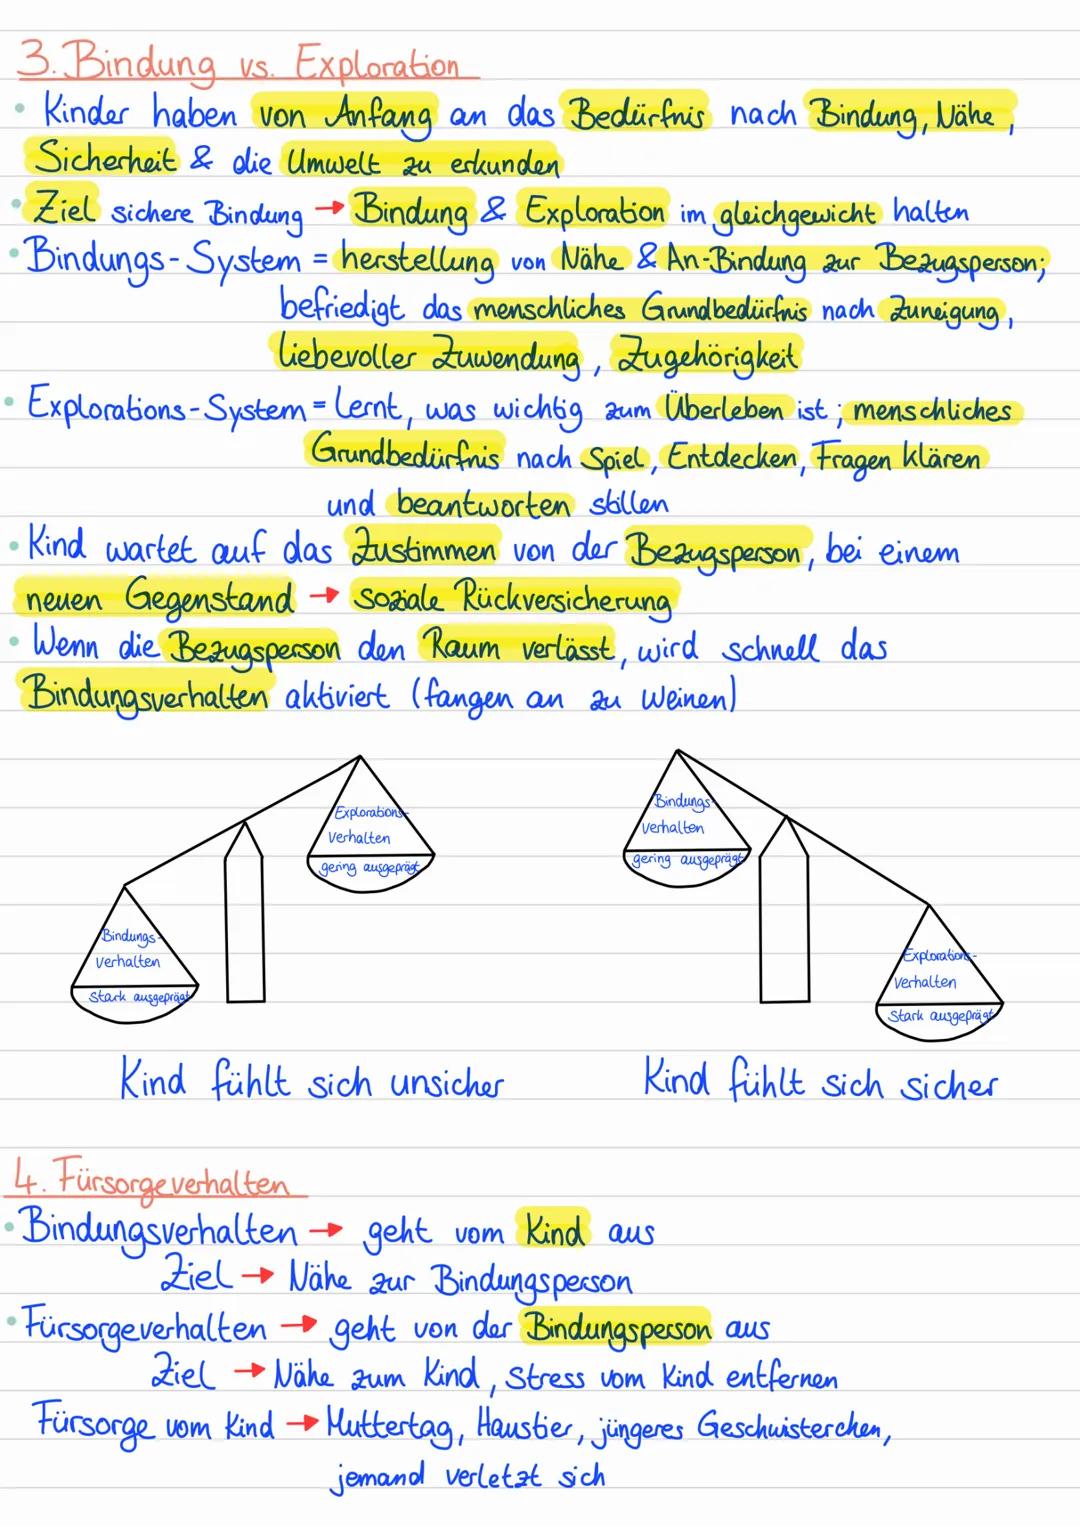 3. Bindung vs. Exploration
• Kinder haben von Anfang an das Bedürfnis nach Bindung, Nähe,
Sicherheit & die Umwelt zu erkunden
• Ziel sichere Bindung → Bindung & Exploration im gleichgewicht halten
• Bindungs-System = herstellung von Nähe & An-Bindung zur Bezugsperson;
befriedigt das menschliches Grundbedürfnis nach Zuneigung,
liebevoller Zuwendung, Zugehörigkeit
• Explorations-System = lernt, was wichtig zum Überleben ist; menschliches
Grundbedürfnis nach Spiel, Entdecken, Fragen klären
und beantworten stillen
• Kind wartet auf das Zustimmen von der Bezugsperson, bei einem
neuen Gegenstand → soziale Rückversicherung
• Wenn die Bezugsperson den Raum verlässt, wird schnell das
Bindungsverhalten aktiviert (fangen an zu weinen)
Explorations-
verhalten
gering ausgeprägt
Bindungs-
verhalten
Stark ausgeprägt
Kind fühlt sich unsicher
Bindungs-
verhalten
gering ausgeprägt
Explorations-
verhalten
Stark ausgeprägt
Kind fühlt sich sicher
4. Fürsorgeverhalten
• Bindungsverhalten → geht vom Kind aus
Ziel → Nähe zur Bindungsperson
• Fürsorgeverhalten → geht von der Bindungsperson aus
Ziel → Nähe zum Kind, Stress vom Kind entfernen
Fürsorge vom Kind → Muttertag, Haustier, jüngeres Geschwisterchen,
jemand verletzt sich